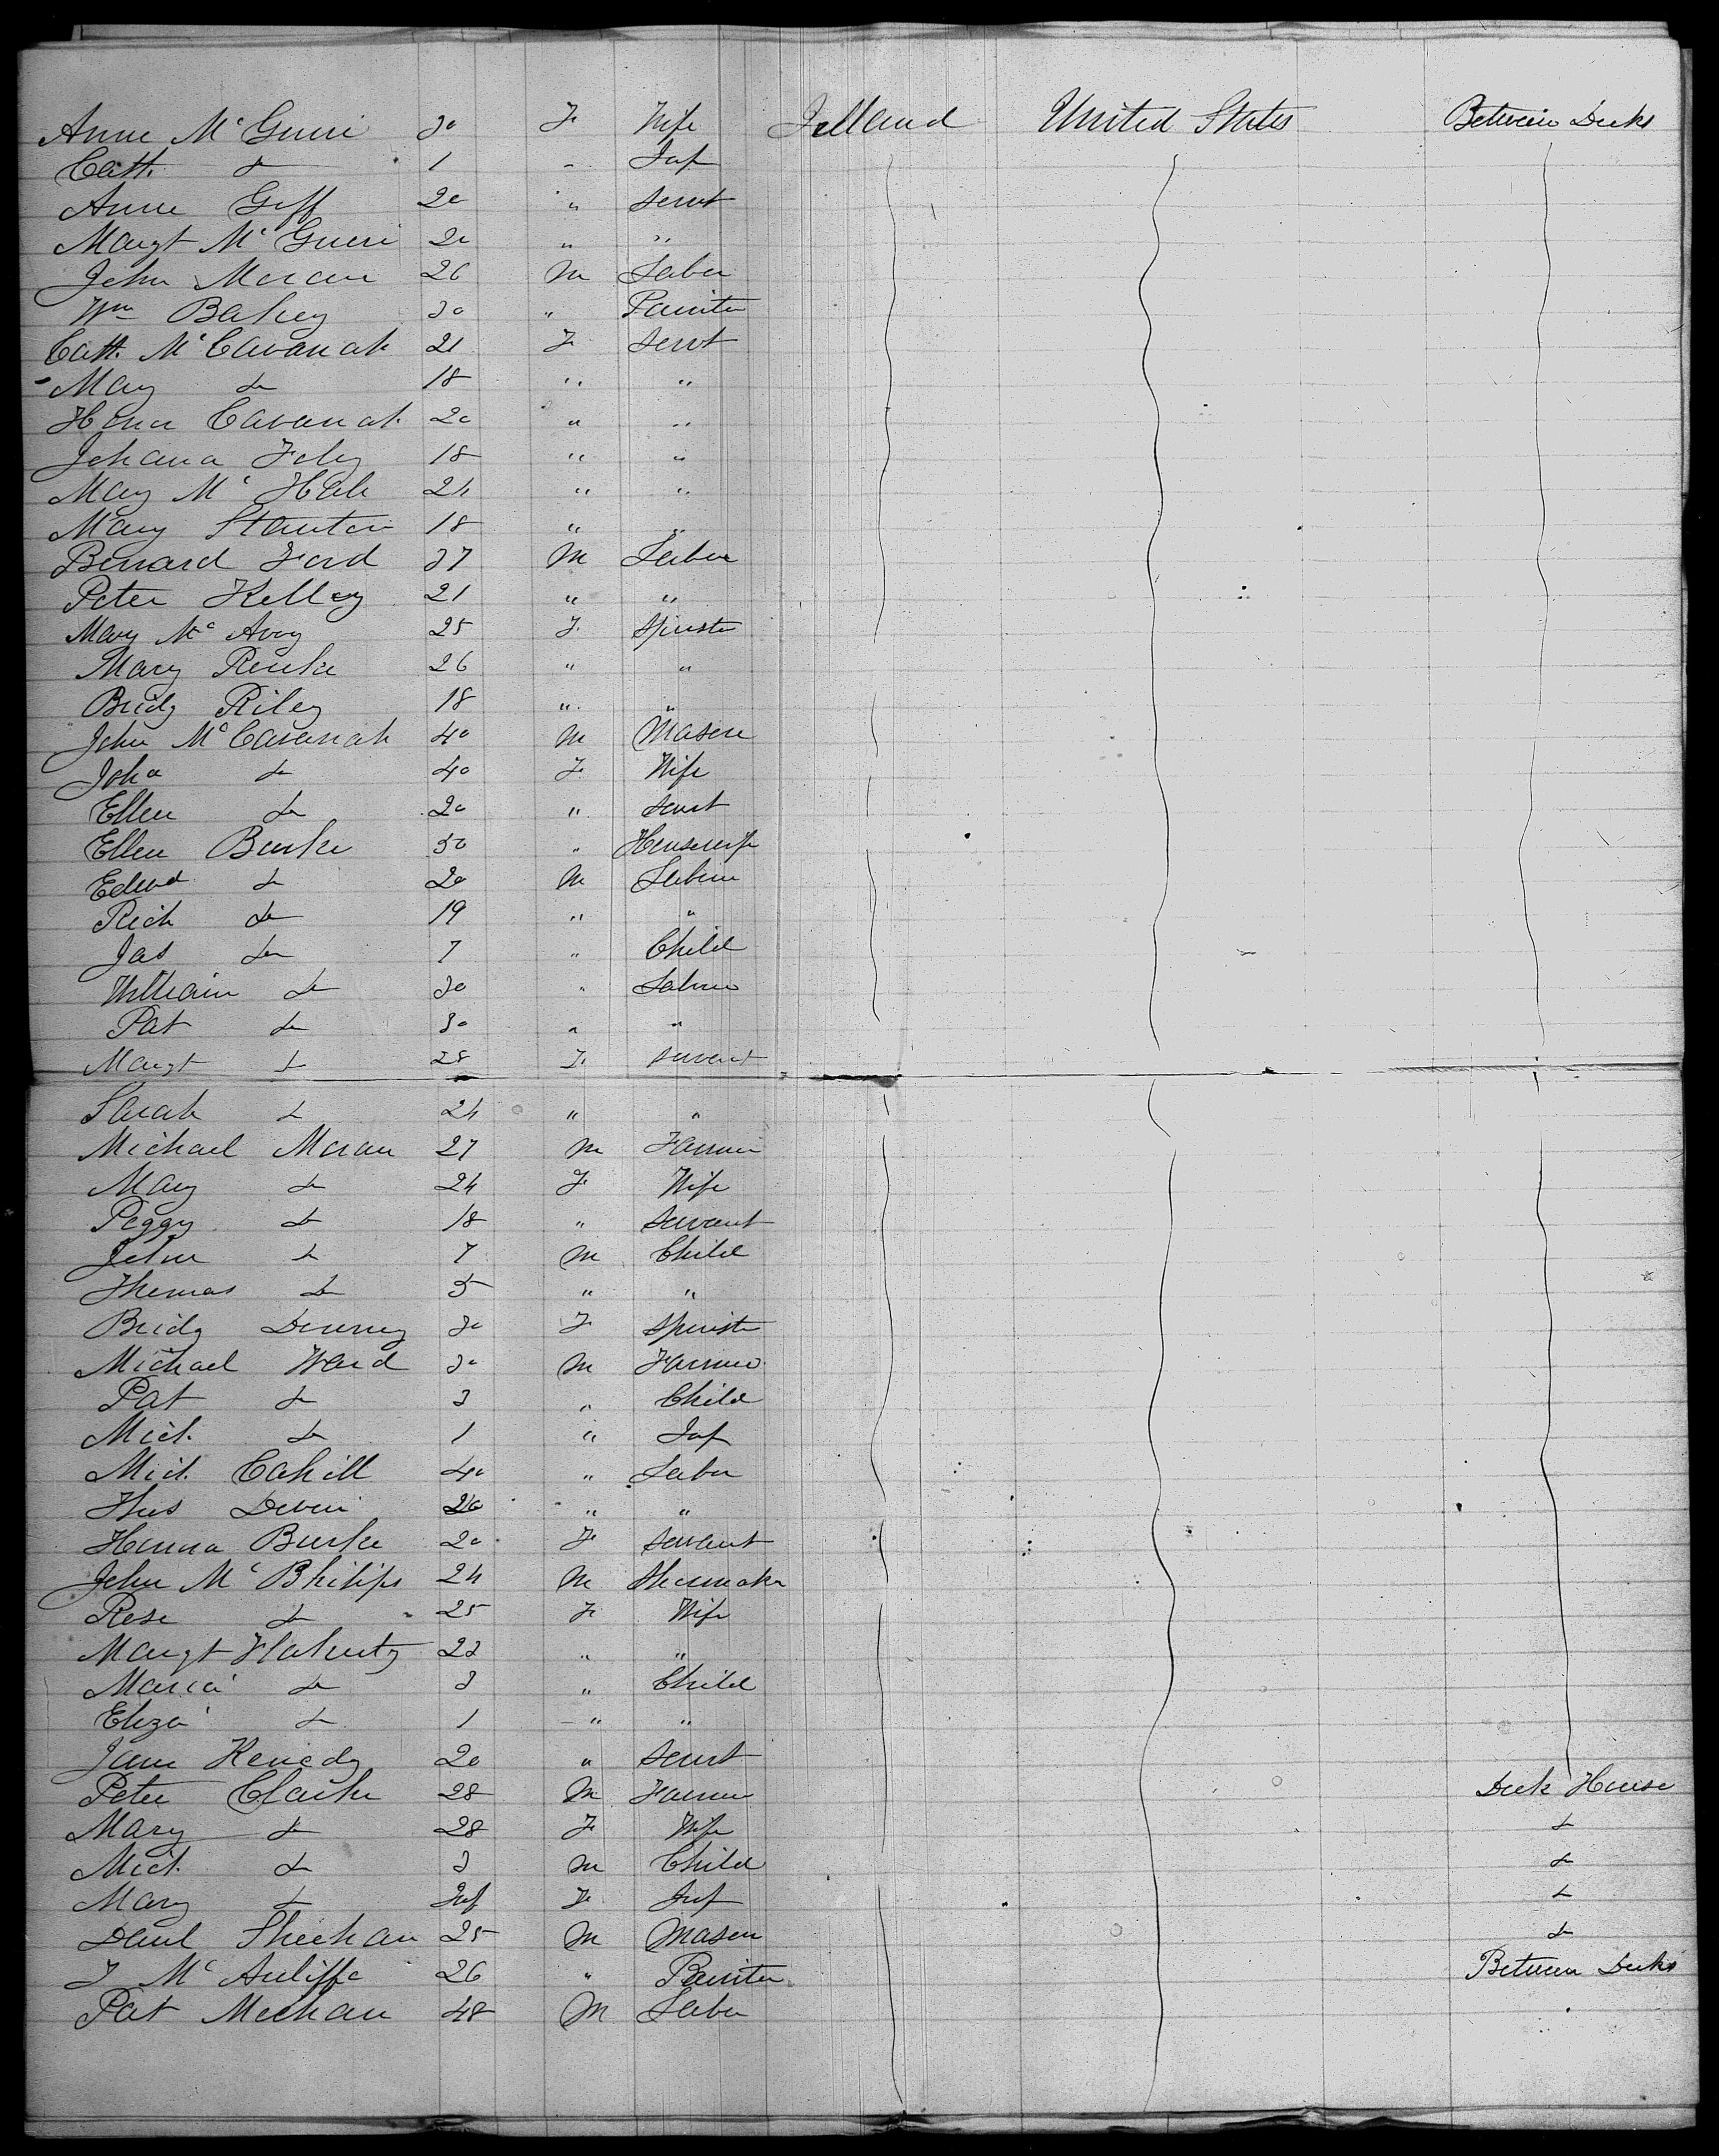 Anne McGuire 30 F Wife Irelland United States Between Decks
Cath. do 1 " Inf
Anne Goff 20 " Servt
Margt McGuire 20 " "
John Moran 26 M Labor
Wm Bahey 30 " Painter
Cath. McCavanah 21 F Servt
Mary do 18 " "
Honor Cavanah 20 " "
Johana Foley 18 " "
Mary McHale 24 " "
Mary Stanton 18 " "
Bernard Ford 37 M Labor
Peter Kelley 21 " "
Mary McAvoy 25 F Spinster
Mary Rourke 26 " "
Bridg Riley 18 " "
John McCavanah 40 M Mason
Joha do 40 F Wife
Ellen do 20 " Servt
Ellen Burke 50 " Housewife
Edwd do 20 M Labour
Rich do 19 " "
Jas do 7 " Child
William do 30 " Labour
Pat do 30 " "
Margt do 28 F Servant
Sarah do 24 " "
Michael Moran 27 M Farmer
Mary do 24 F Wife
Peggy do 18 " Servant
John do 7 M Child
Thomas do 5 " "
Bridg Downey 30 F Spinster
Michael Ward 30 M Farmer
Pat do 3 " Child
Mich. do 1 " Inf
Mich. Cahill 40 " Labor
Thos Devin 20 " "
Hanna Burke 20 F Servant
John McPhilips 24 M Shoemaker
Rose do 25 F Wife
Margt Flaherty 23 " "
Maria do 3 " Child
Eliza do 1 " "
Jane Kenedy 20 " Servt
Peter Clarke 28 M Farmer Deck House
Mary do 28 F Wife do
Mich. do 3 M Child do
Mary do Inf F Inf do
Danl Sheehan 25 M Mason do
J McAuliffe 26 " Painter Between Decks
Pat Meehan 48 M Labor